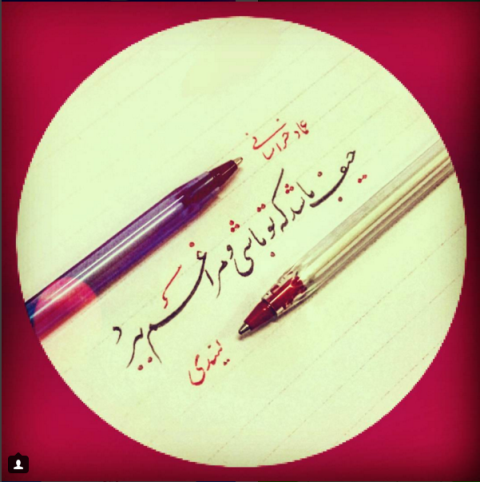 عماد خراسانی
حیف باشد که تو باشی و مرا غم ببرد